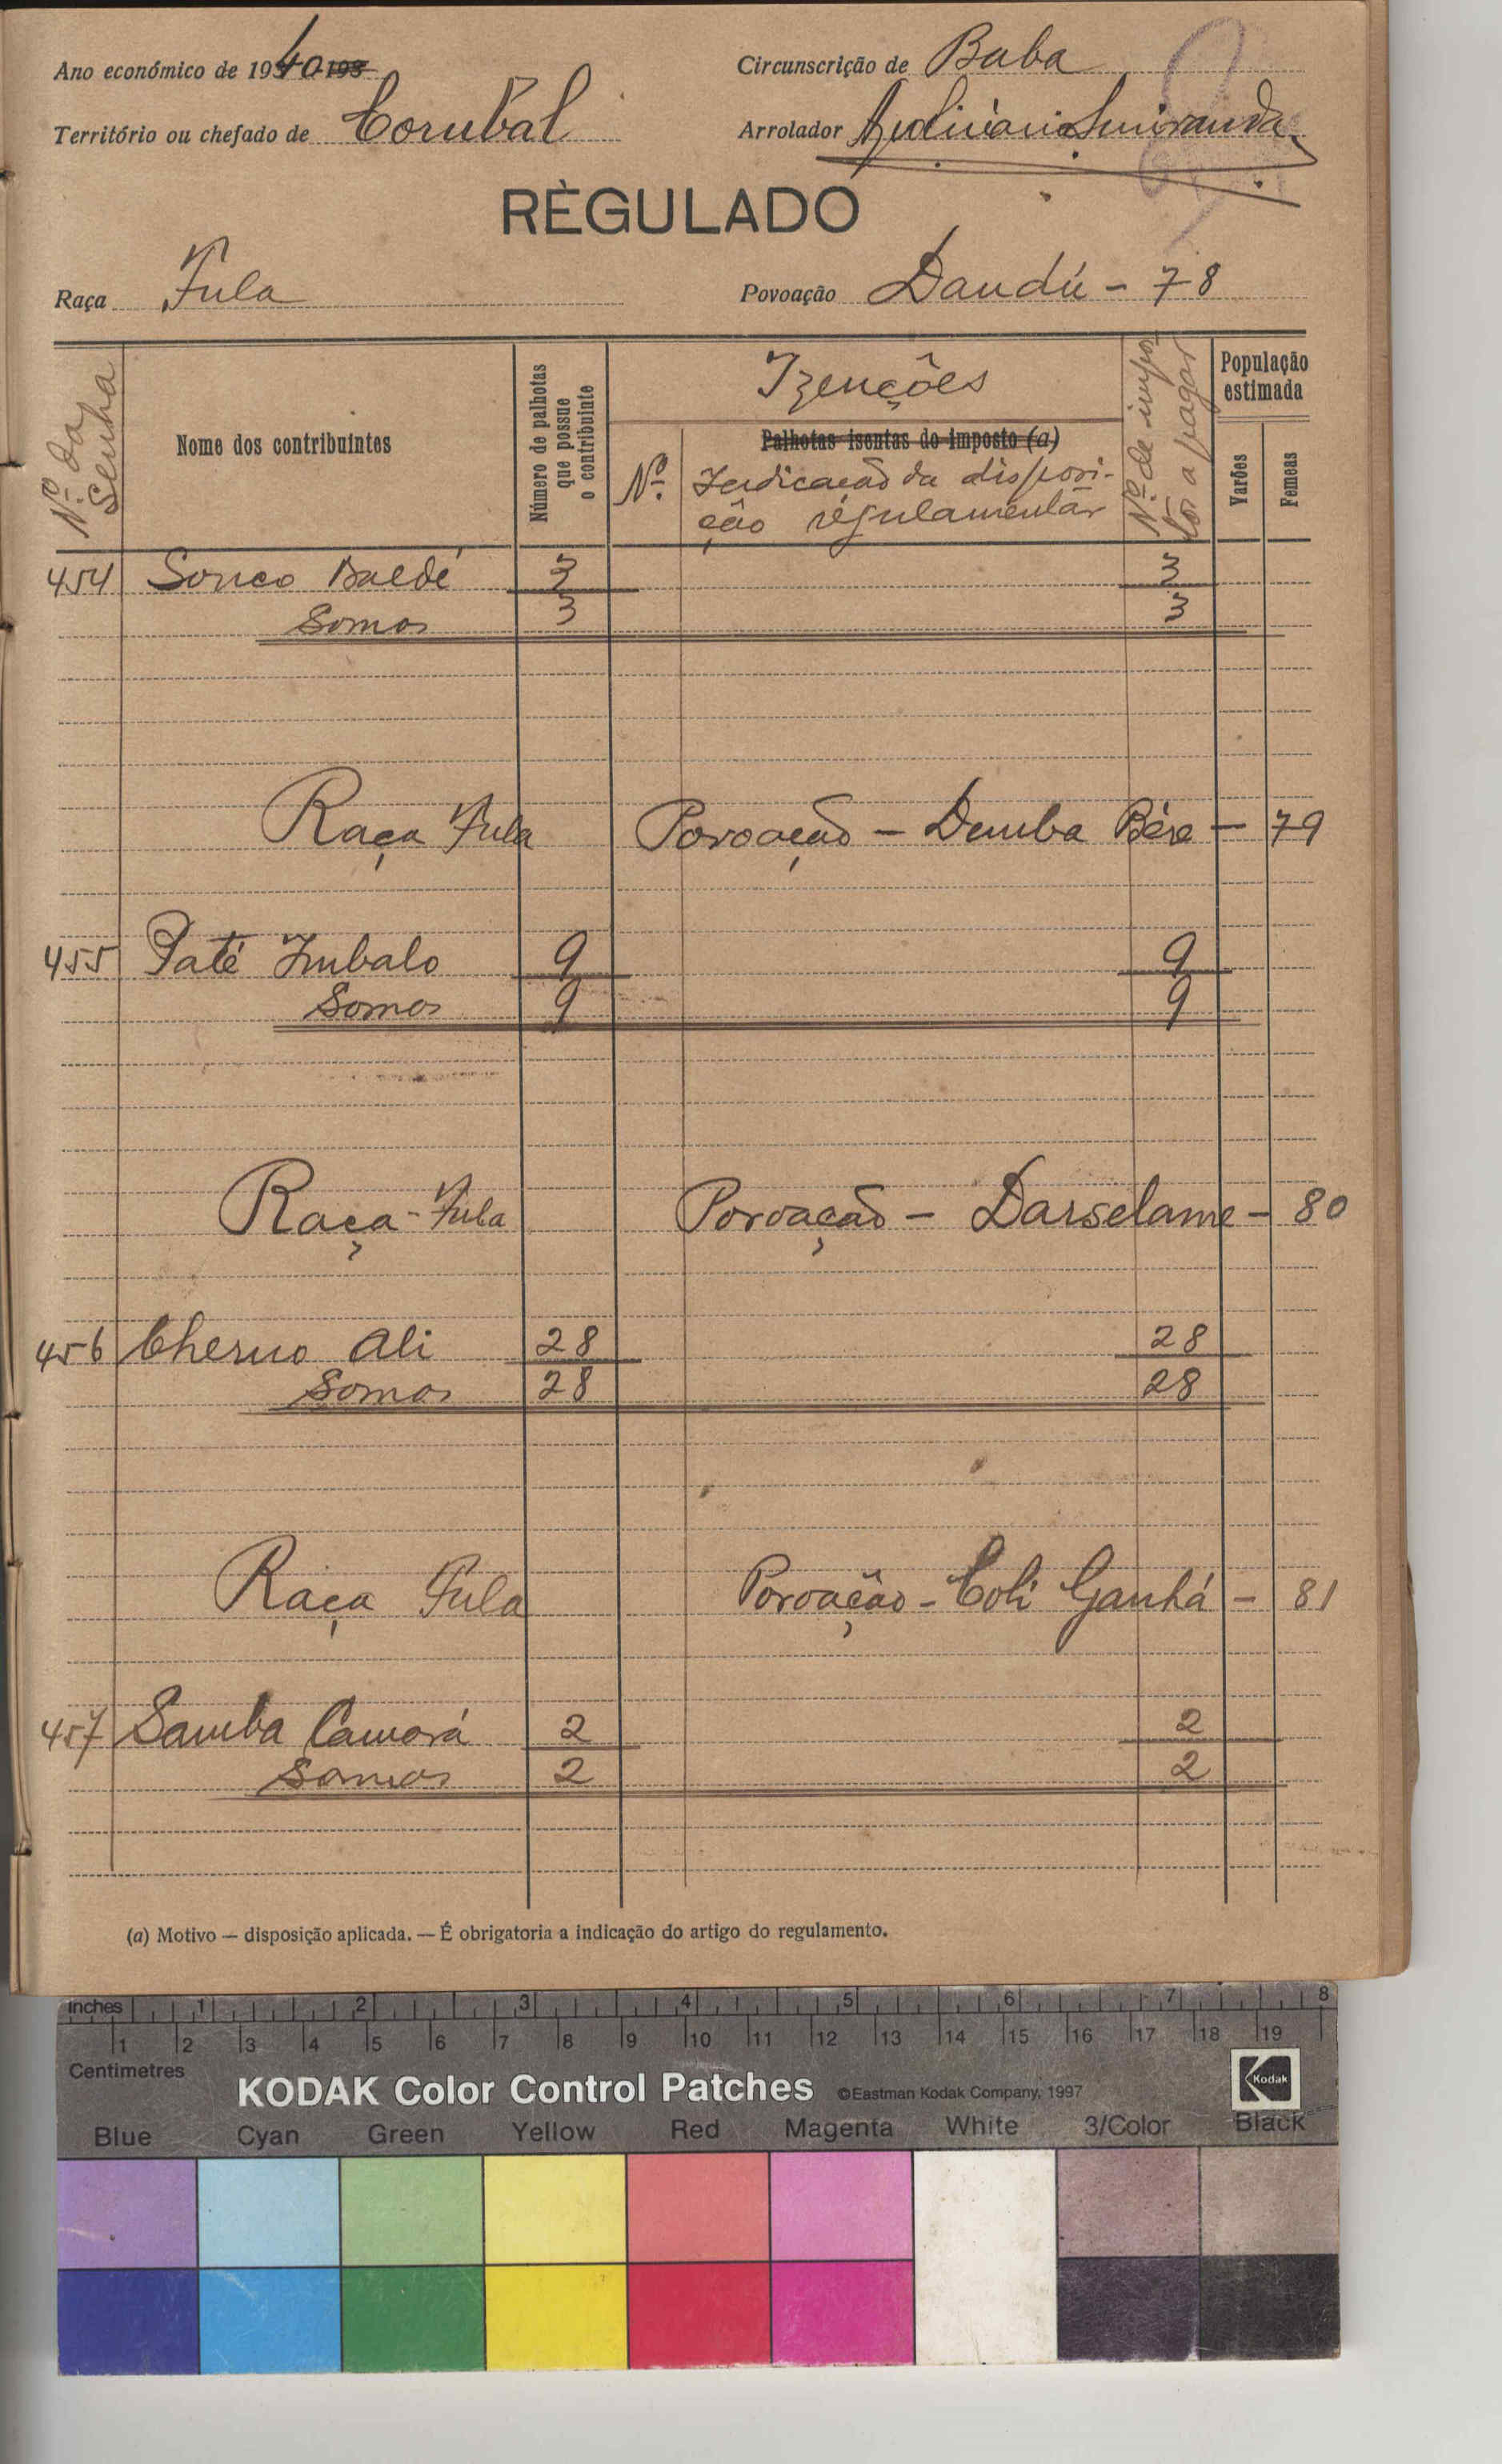 Ano económico de 1940 193
Circunscrição de Buba
Território ou chefado de Corubal
Arrolador
RÈGULADO
Raça Fula
Povoação Dandú - 78
Nº da Senha
Nome dos contribuintes
Número de palhotas que possue o contribuinte
Izenções
Palhotas isentas do imposto (a)
Nº.
Indicação da disposi-
ção régulamentar
Nº de impos
tos a pagar
População estimada
Varões
Femeas
454 Sonco Baldé 3 3
Somos 3 3
Raça Fula Povoação - Demba Béro - 79
455 Paté Imbalo 9 9
Somos 9 9
Raça - Fula Povoação - Darselame - 80
456 Cherno Ali 28 28
Somos 28 28
Raça Fula Povoação - Coli Ganhá - 81
457 Samba Camorá 2 2
Somos 2 2
(a) Motivo — disposição aplicada. — É obrigatoria a indicação do artigo do regulamento.
inches 1 2 3 4 5 6 7 8
1 2 3 4 5 6 7 8 9 10 11 12 13 14 15 16 17 18 19
Centimetres
KODAK Color Control Patches ©Eastman Kodak Company, 1997 Kodak
Blue Cyan Green Yellow Red Magenta White 3/Color Black